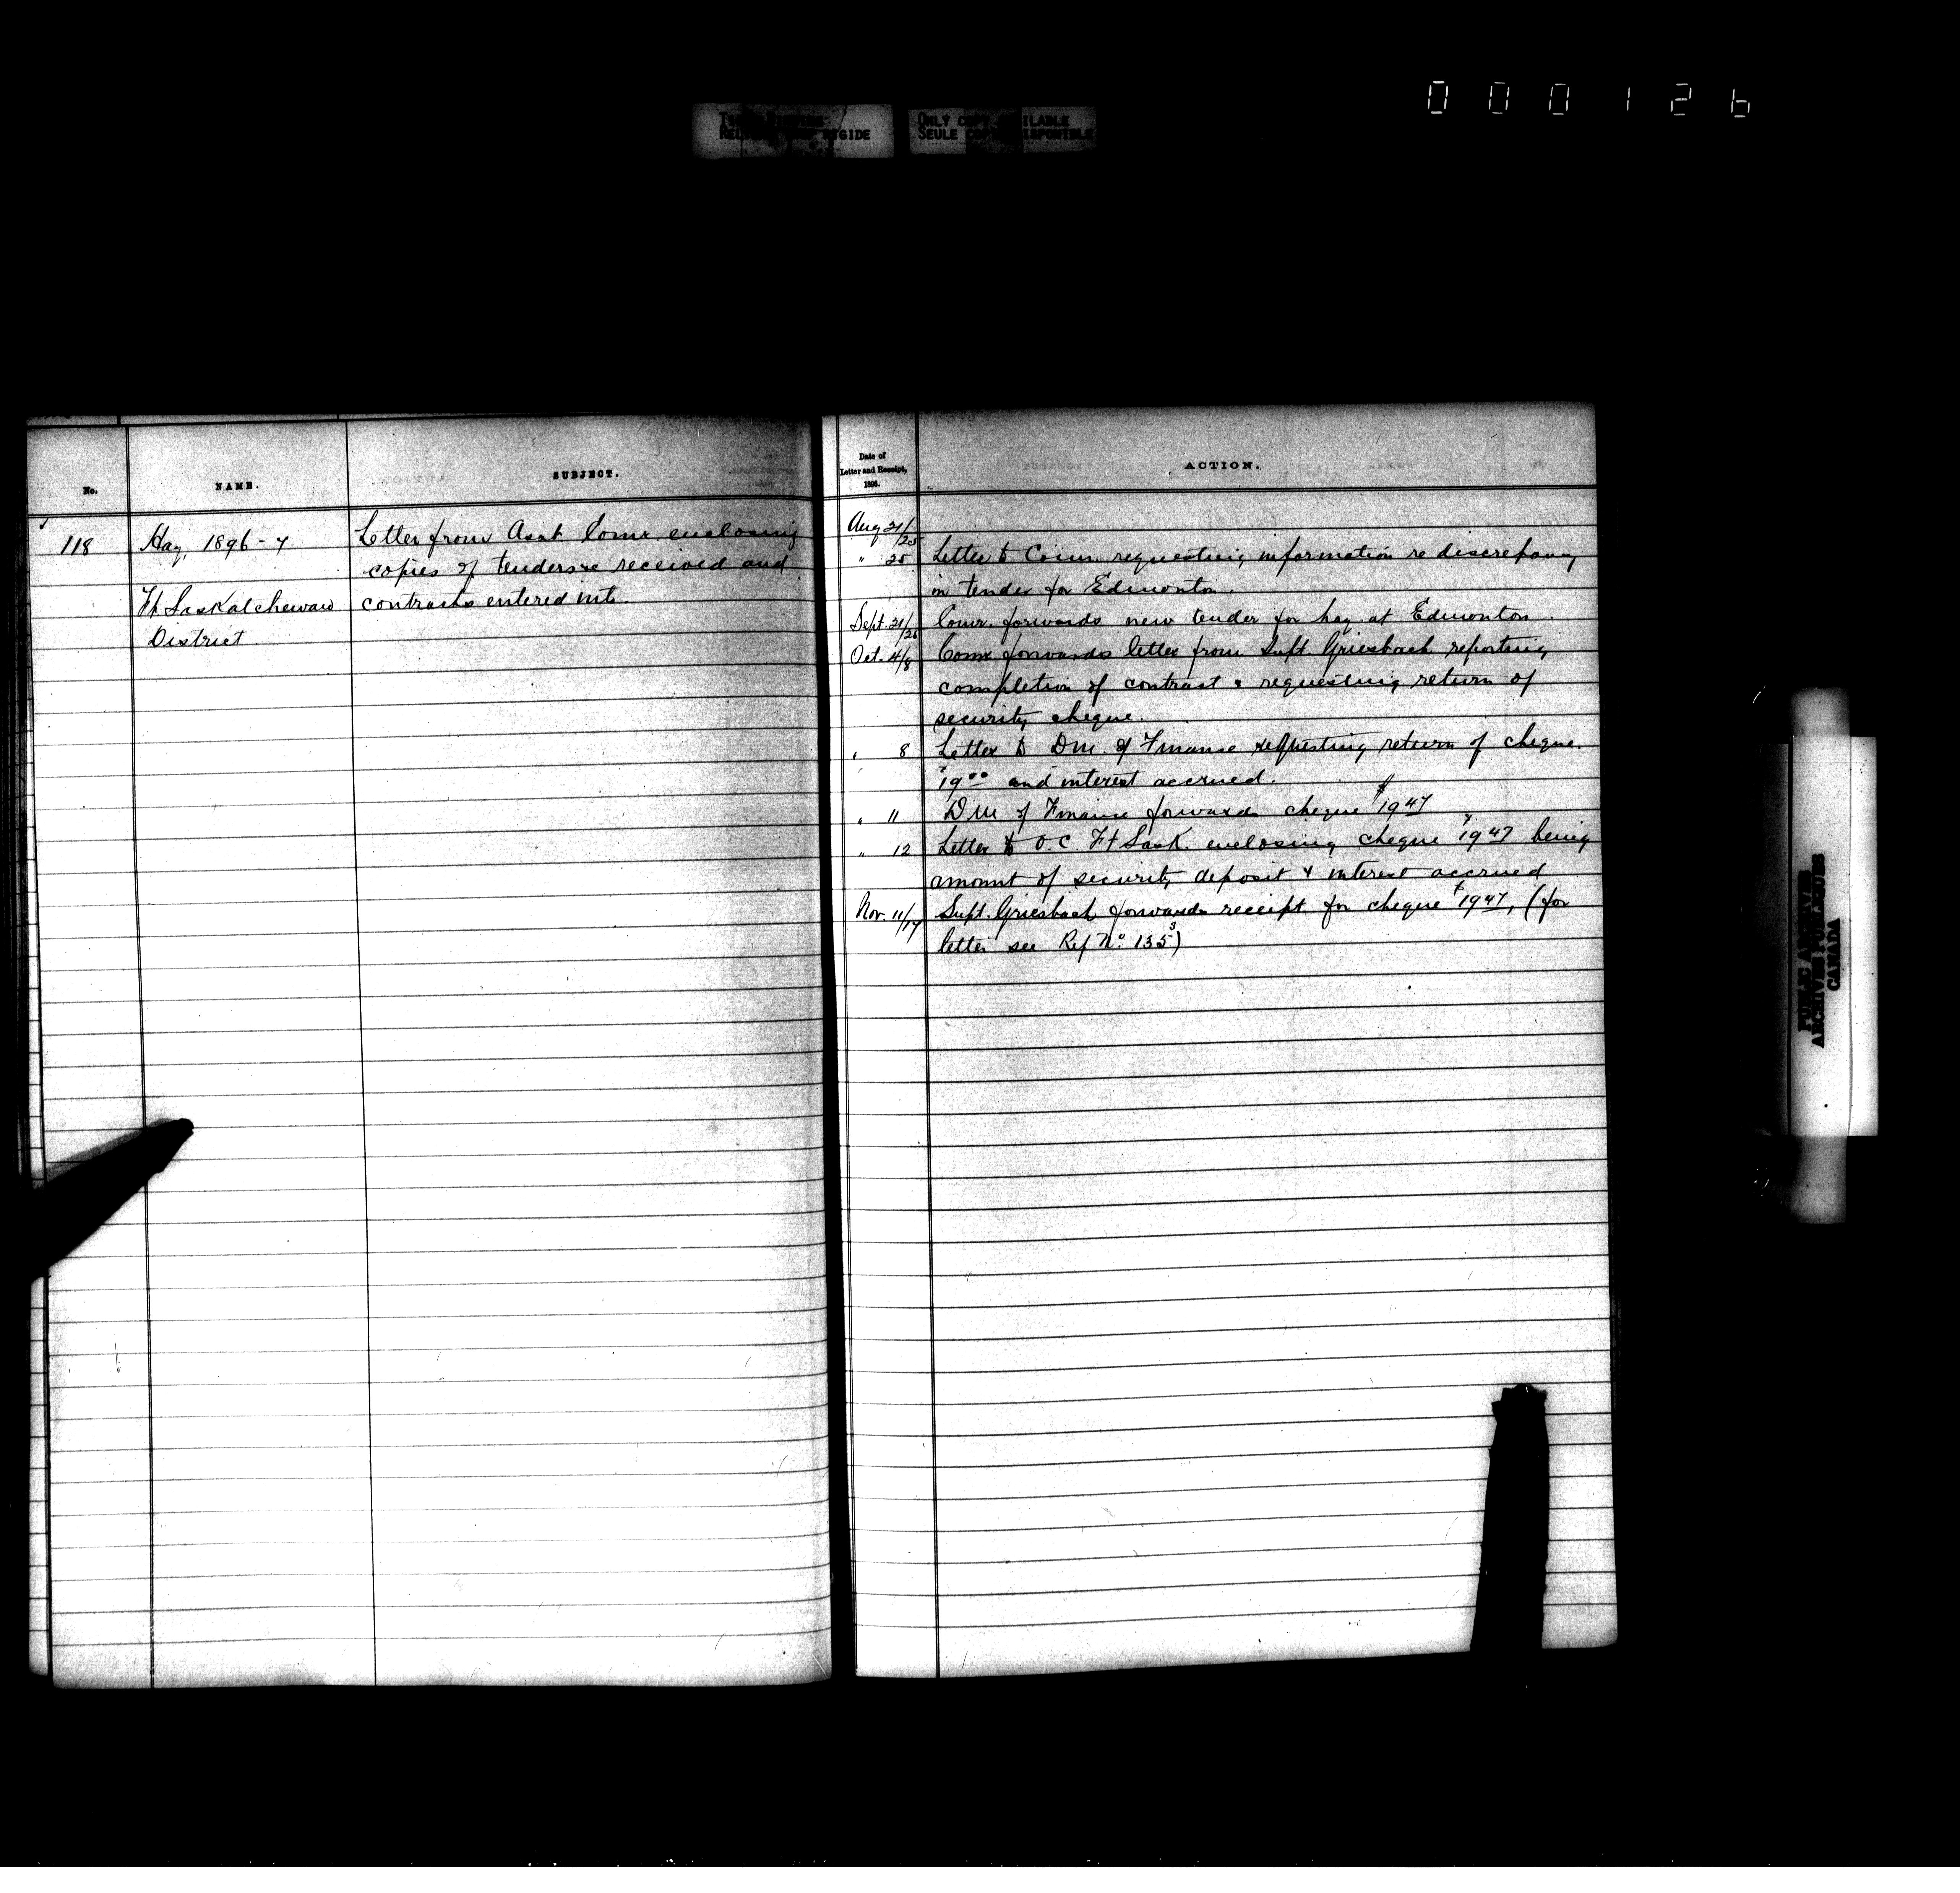 000126
ONLY COPY AVAILABLE
SEULE COPIE DISPONIBLE
No.
NAME.
SUBJECT.
118
Hay, 1896-7
Ft Saskatchewan
District
Letter from Asst Comr. enclosing
copies of tenders &c received and
contracts entered into
Date of
Letter and Receipt,
1896.
ACTION.
Aug 21/25
" 25 Letter to Comr. requesting information re discrepancy
in tender for Edmonton.
Sept. 21/26 Comr. forwards new tender for hay at Edmonton.
Oct. 4/8 Comr forwards letter from Supt Griesbach reporting
completion of contract & requesting return of
security cheque.
" 8 Letter to D.M. of Finance requesting return of cheque
$19.00 and interest accrued.
" 11 D.M of Finance forwards cheque $19 47
" 12 Letter to O.C. Ft Sask. enclosing cheque $19 47 being
amount of security deposit & interest accrued
Nov. 11/17 Supt. Griesbach forwards receipt for cheque $19 47, (for
letter see Ref No. 135 3)
PUBLIC ARCHIVES
ARCHIVES PUBLIQUES
CANADA